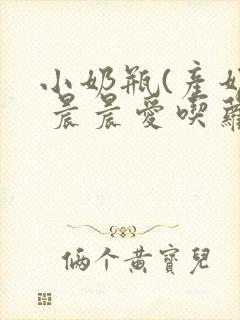 小奶瓶(產奶
晨晨愛喫蘿
倆个黃寶兒